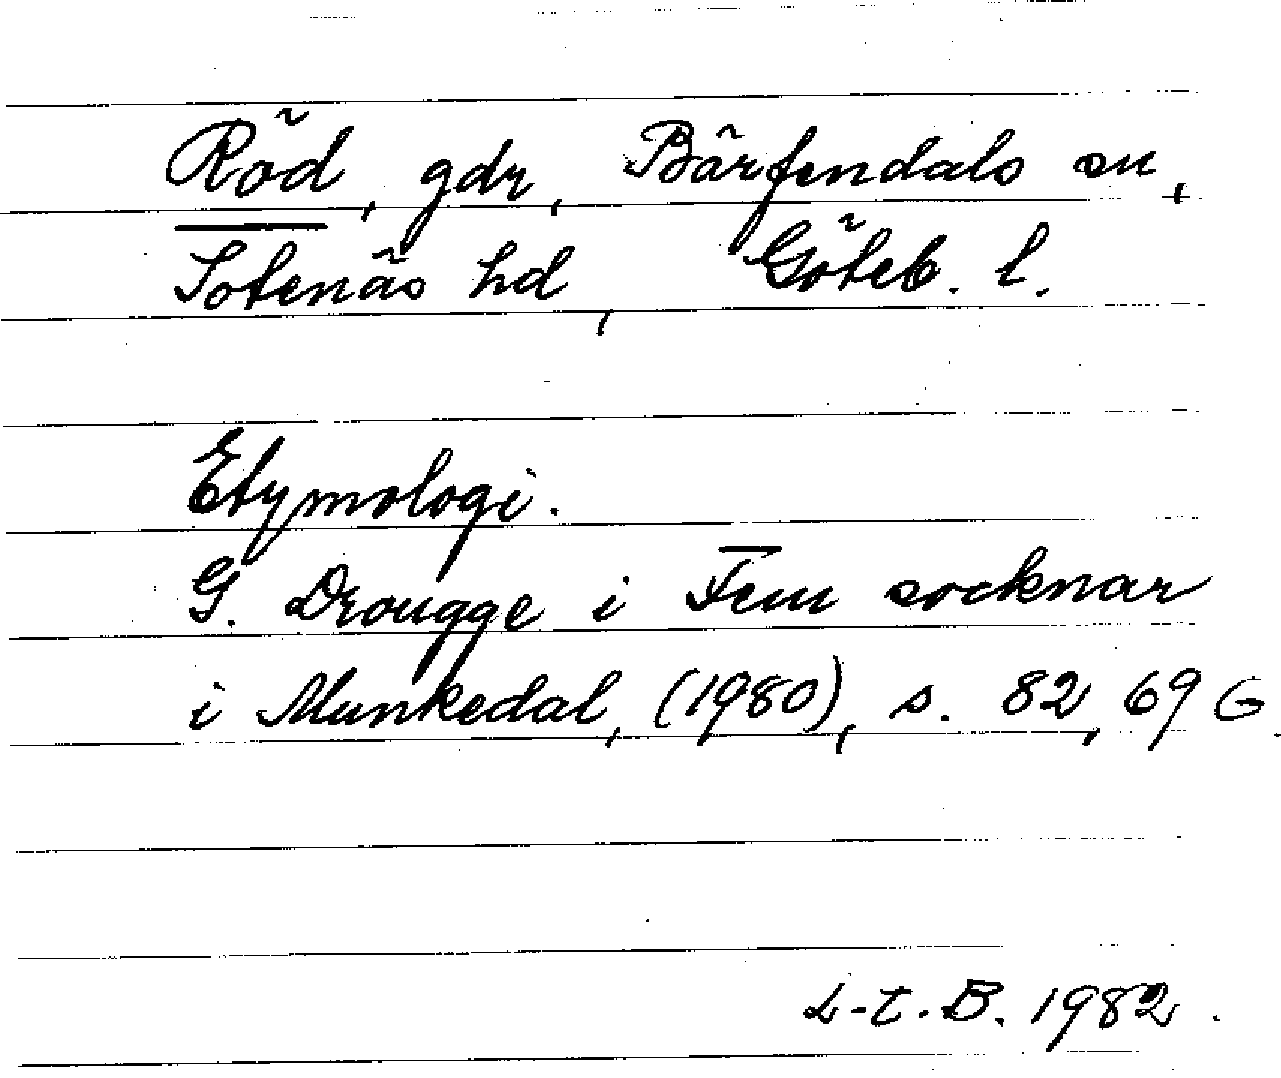 Röd, gdr, Bärfendals sn,
Sotenäs hd, Göteb. l.
Etymologi.
G. Drougge i Fem socknar
i Munkedal, (1980), s. 82, 69 G.
L-t. B. 1982.